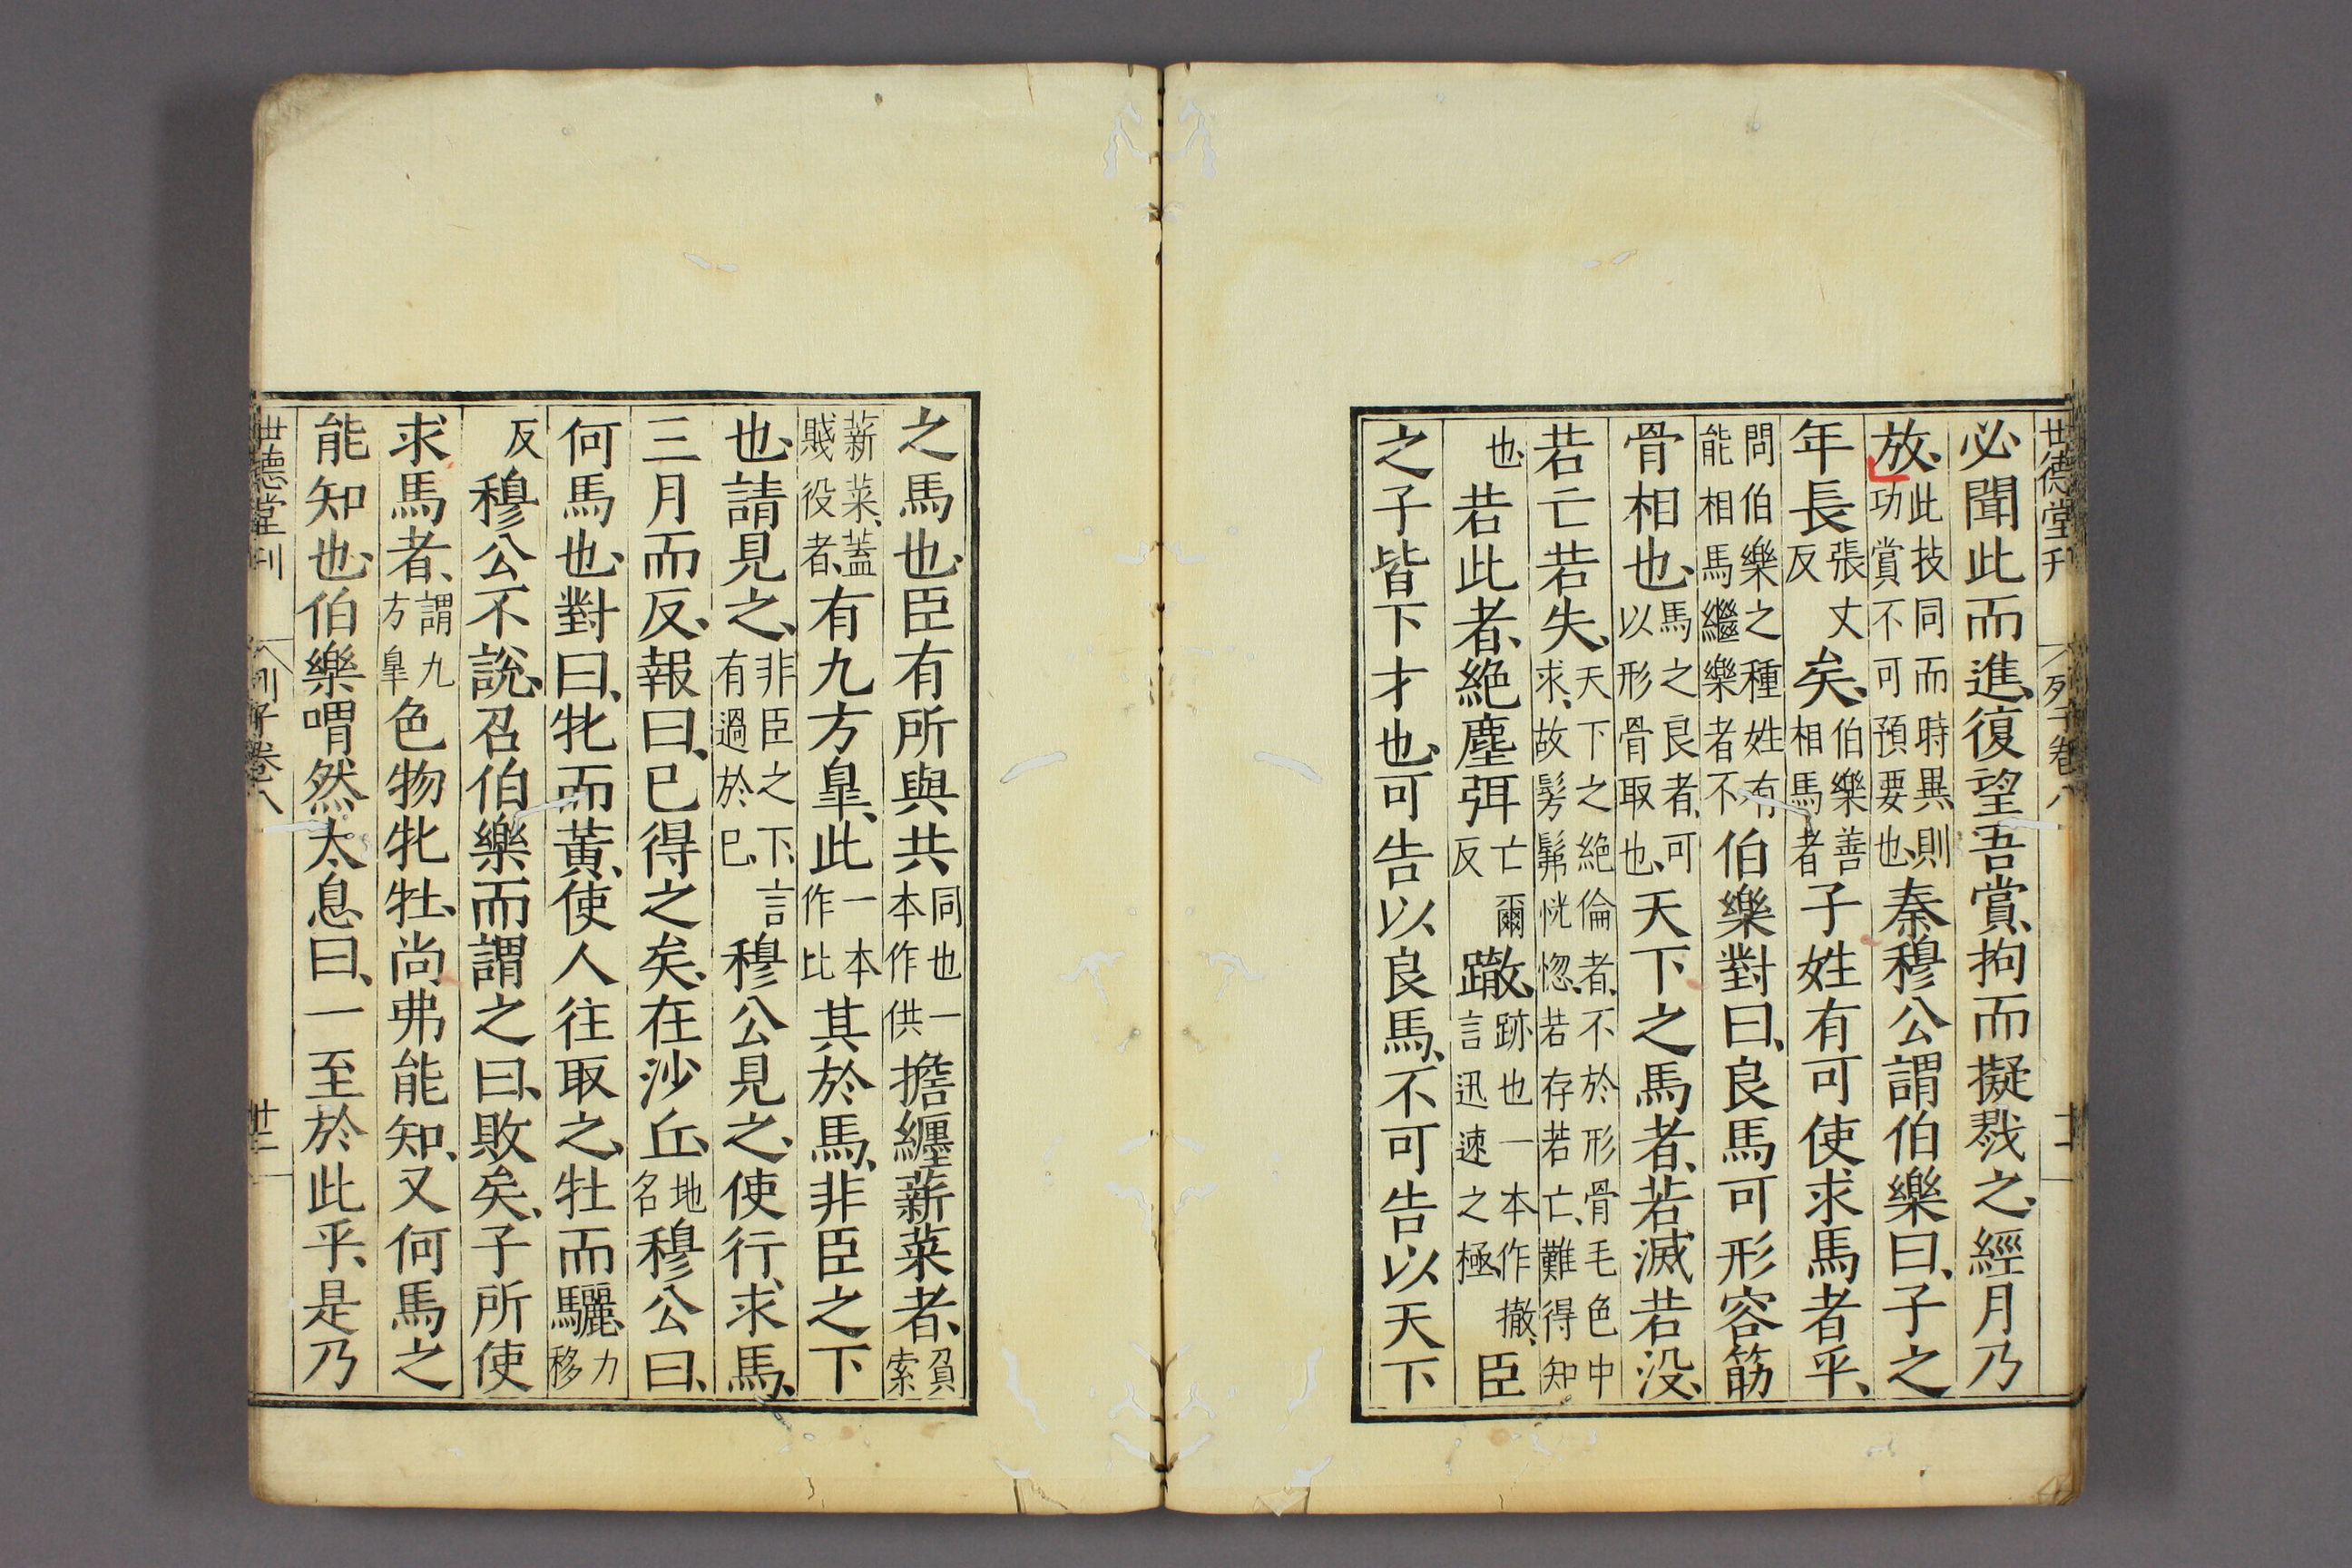 世德堂刊　列子卷八
必聞此而進、復望吾賞、拘而擬戮之、經月乃
放、此技同而時異、則功賞不可預要也、秦穆公謂伯樂曰、子之
年長張丈反矣、伯樂善相馬者子姓有可使求馬者乎、
問伯樂之種姓有能相馬繼樂者不伯樂對曰、良馬可形容筋
骨相也、馬之良者、可以形骨取也、天下之馬者、若滅若没、
若亡若失、天下之絶倫者、不於形骨毛色中求、故髣髴恍惚、若存若亡、難得知
也、若此者、絶塵弭亡爾反𨅊、跡也一本作撤、言迅速之極、臣
之子皆下才也、可告以良馬、不可告以天下
之馬也、臣有所與共、同也一本作供擔纒薪菜者、負索
薪菜、蓋賤役者、有九方臯、此一本作比其於馬、非臣之下
也、請見之、非臣之下、言有過於巳、穆公見之、使行求馬、
三月而反、報曰、已得之矣、在沙丘、地名穆公曰、
何馬也、對曰、牝而黄、使人往取之、牡而驪、力移
反穆公不說、召伯樂而謂之曰、敗矣、子所使
求馬者、謂九方臯色物牝牡、尚弗能知、又何馬之
能知也、伯樂喟然太息曰、一至於此乎、是乃
世德堂刊　列子卷八　廿二